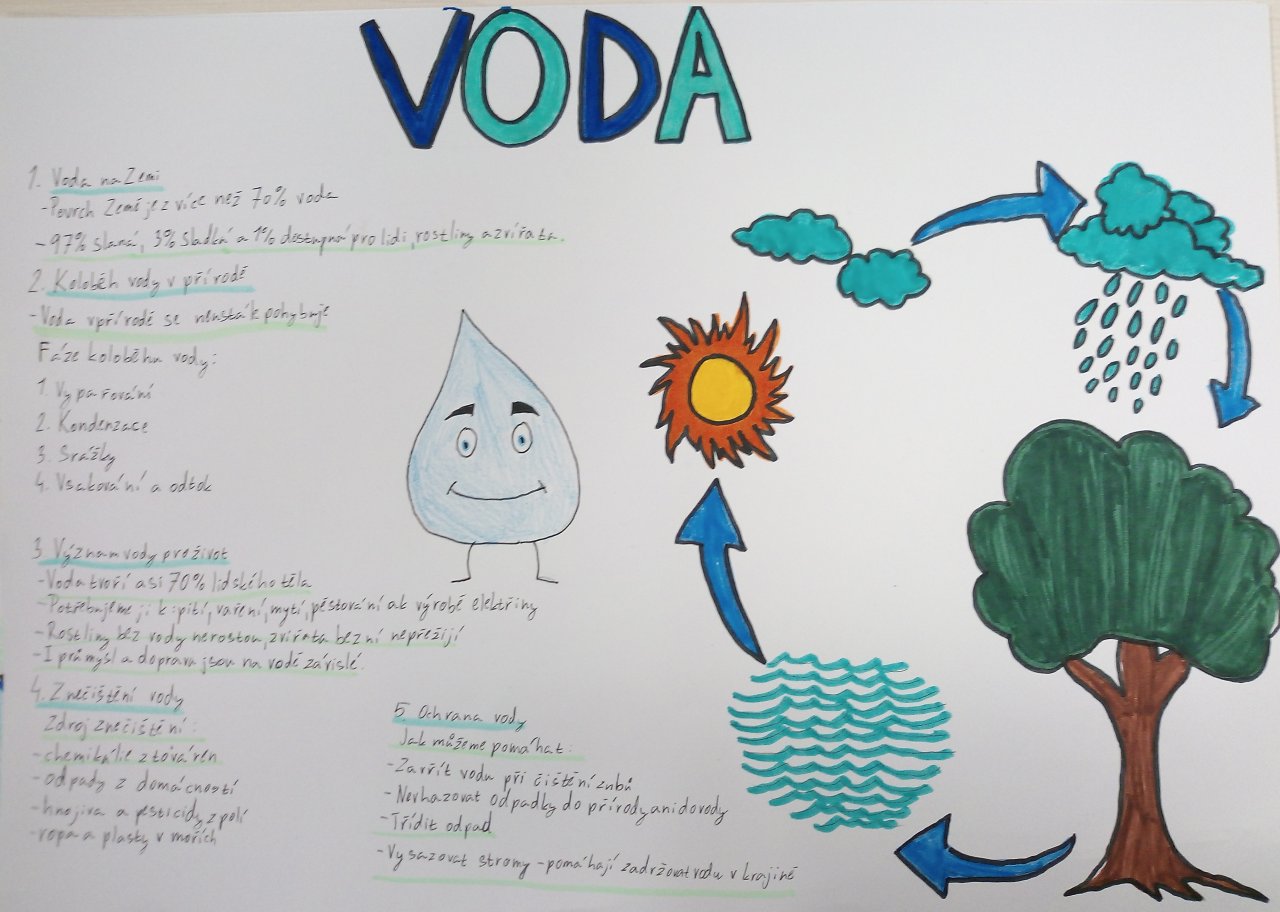 VODA
1. Voda na Zemi
-Povrch Země je z více než 70% voda
-97% slaná, 3% sladká a 1% dostupná pro lidi, rostliny a zvířata.
2. Koloběh vody v přírodě
-Voda v přírodě se neusták pohybuje
Fáze koloběhu vody:
1. Vypařování
2. Kondenzace
3. Srážky
4. Vsakování a odtok
3. Význam vody pro život
-Voda tvoří asi 70% lidského těla
-Potřebujeme ji k:pití, vaření, mytí, pěstování a k výrobě elektřiny
-Rostliny bez vody nerostou, zvířata bez ní nepřežijí
-I průmysl a doprava jsou na vodě závislé.
4. Znečištění vody
Zdroj znečištění:
-chemikálie z továren
-odpady z domácností
-hnojiva a pesticidy z polí
-ropa a plasty v mořích
5 Ochrana vody
Jak můžeme pomáhat:
-Zavřít vodu při čištění zubů
-Nevhazovat odpadky do přírody ani do vody
-Třídit odpad
-Vysazovat stromy -pomáhají zadržovat vodu v krajině